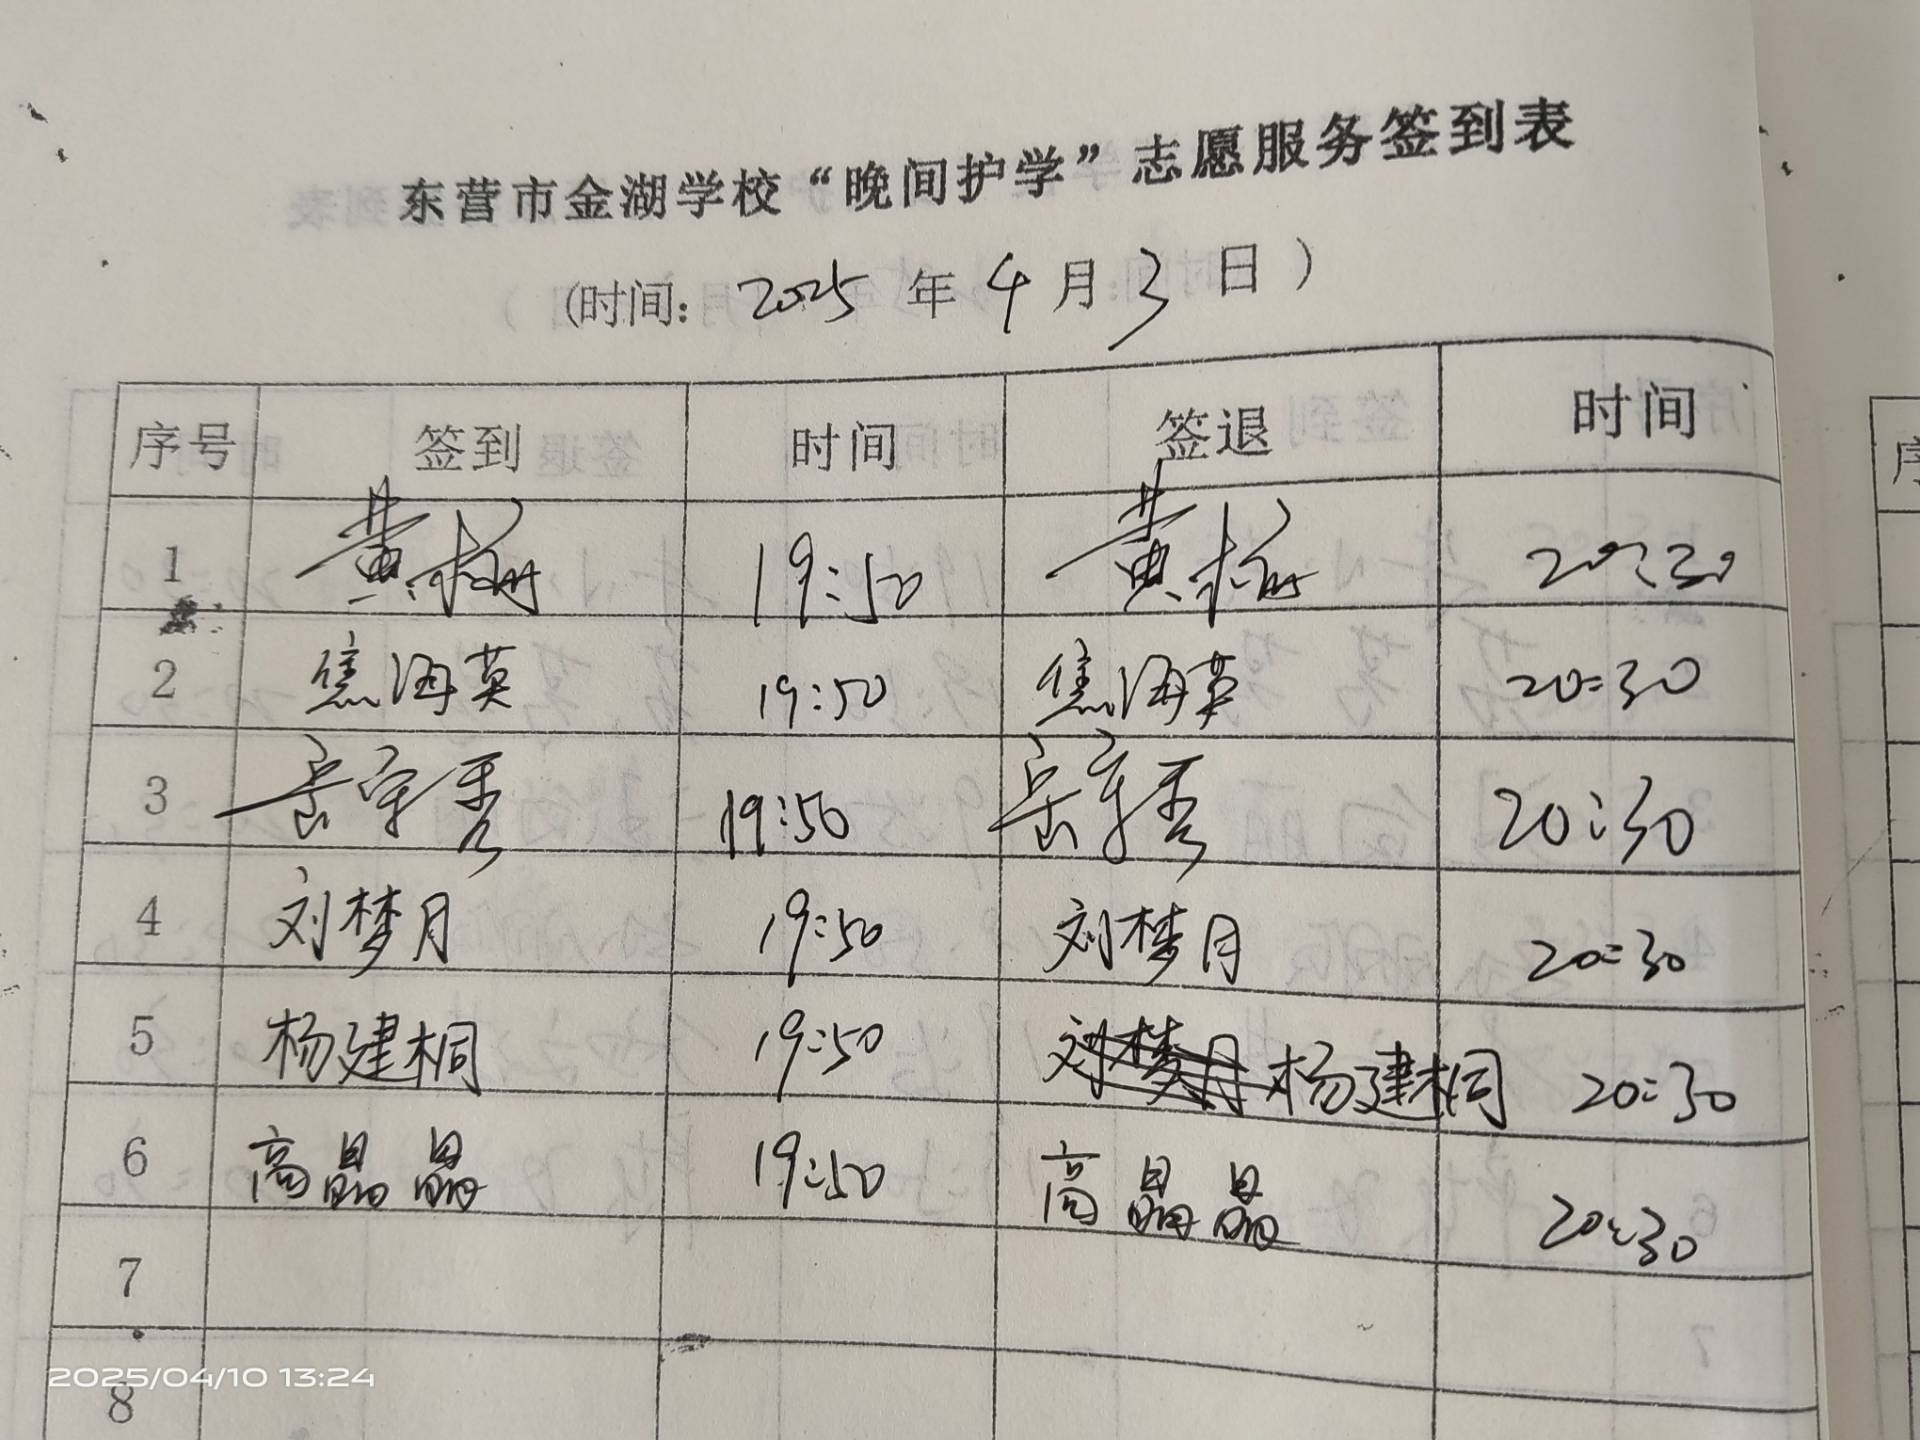 东营市金湖学校“晚间护学”志愿服务签到表
(时间: 2025 年 4 月 3 日 )
序号 签到 时间 签退 时间
1 黄 19:50 黄 20:30
2 焦海英 19:50 焦海英 20:30
3 岳秀 19:50 岳秀 20:30
4 刘梦月 19:50 刘梦月 20:30
5 杨建桐 19:50 刘梦月 杨建桐 20:30
6 高晶晶 19:50 高晶晶 20:30
7
8
2025/04/10 13:24
序